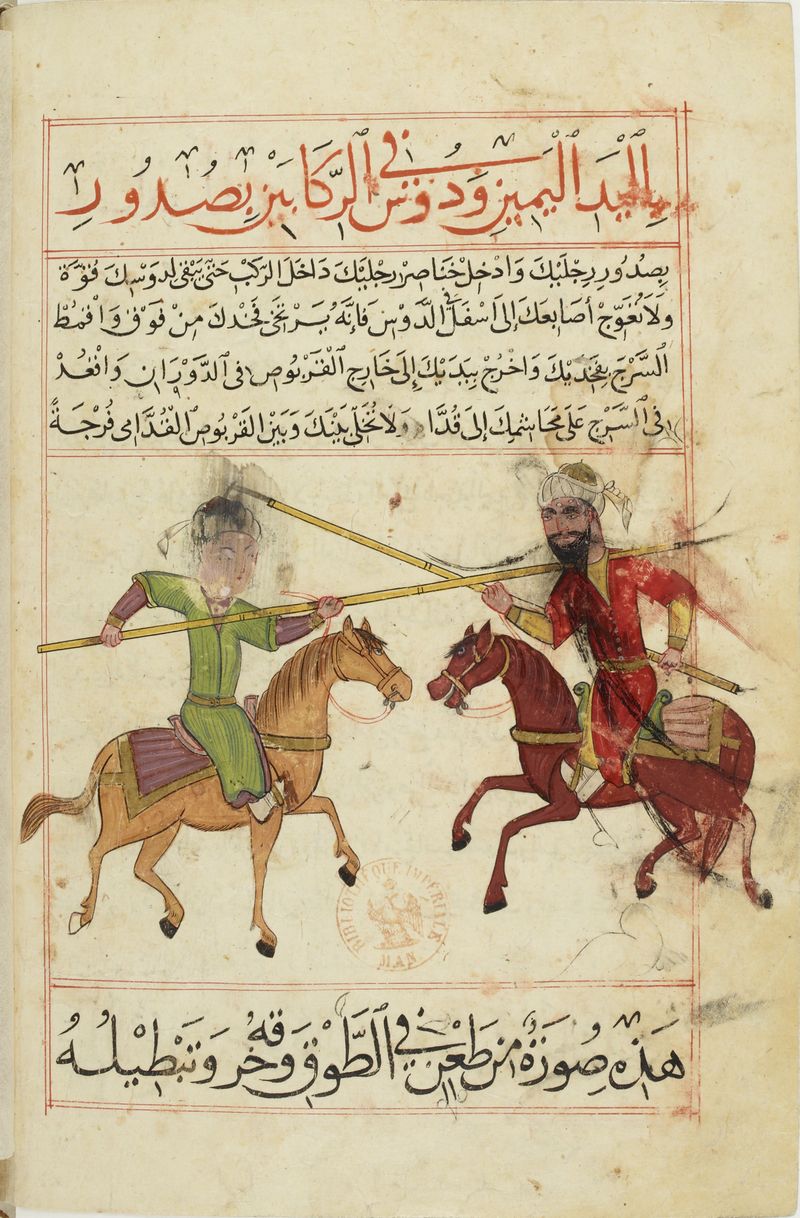 بِالْيَدِ الْيَمِينِ وَدَوْسٌ فِي الرِّكَابَيْنِ بِصُدُورِ
بِصُدُورِ رِجْلَيْكَ وَادْخِلْ خَنَاصِرَ رِجْلَيْكَ دَاخِلَ الرَّكْبْ حَتَّى يَبْقَى لِدَوْسِكَ قُوَّةٌ
وَلَا تُعَوِّجْ أَصَابِعَكَ إِلَى أَسْفَلَ فِي الدَّوْسِ فَإِنَّهُ يَرْتَخَى فَخْذكَ مِنْ فَوْقُ وَاقْمُطْ
السَّرْجَ بِفَخْذَيْكَ وَاخْرُجْ بِيَدَيْكَ إِلَى خَارِجِ الْقَرَبُوصِ فِي الدَّوْرَانِ وَاقْعُدْ
فِي السَّرْجِ عَلَى مَحَاشِمِكَ إِلَى قُدَّامْ وَلَا تُخَلِّ بَيْنَكَ وَبَيْنَ الْقَرْبُوصِ الْقُدَّامِي فُرْجَةً
BIBLIOTHEQUE IMPERIALE MAN
هَذِهِ صُورَةُ مَنْ طَعَنَ فِي الطَّوْقِ وَخَرَقَهُ وَتَبْطِيلُهُ